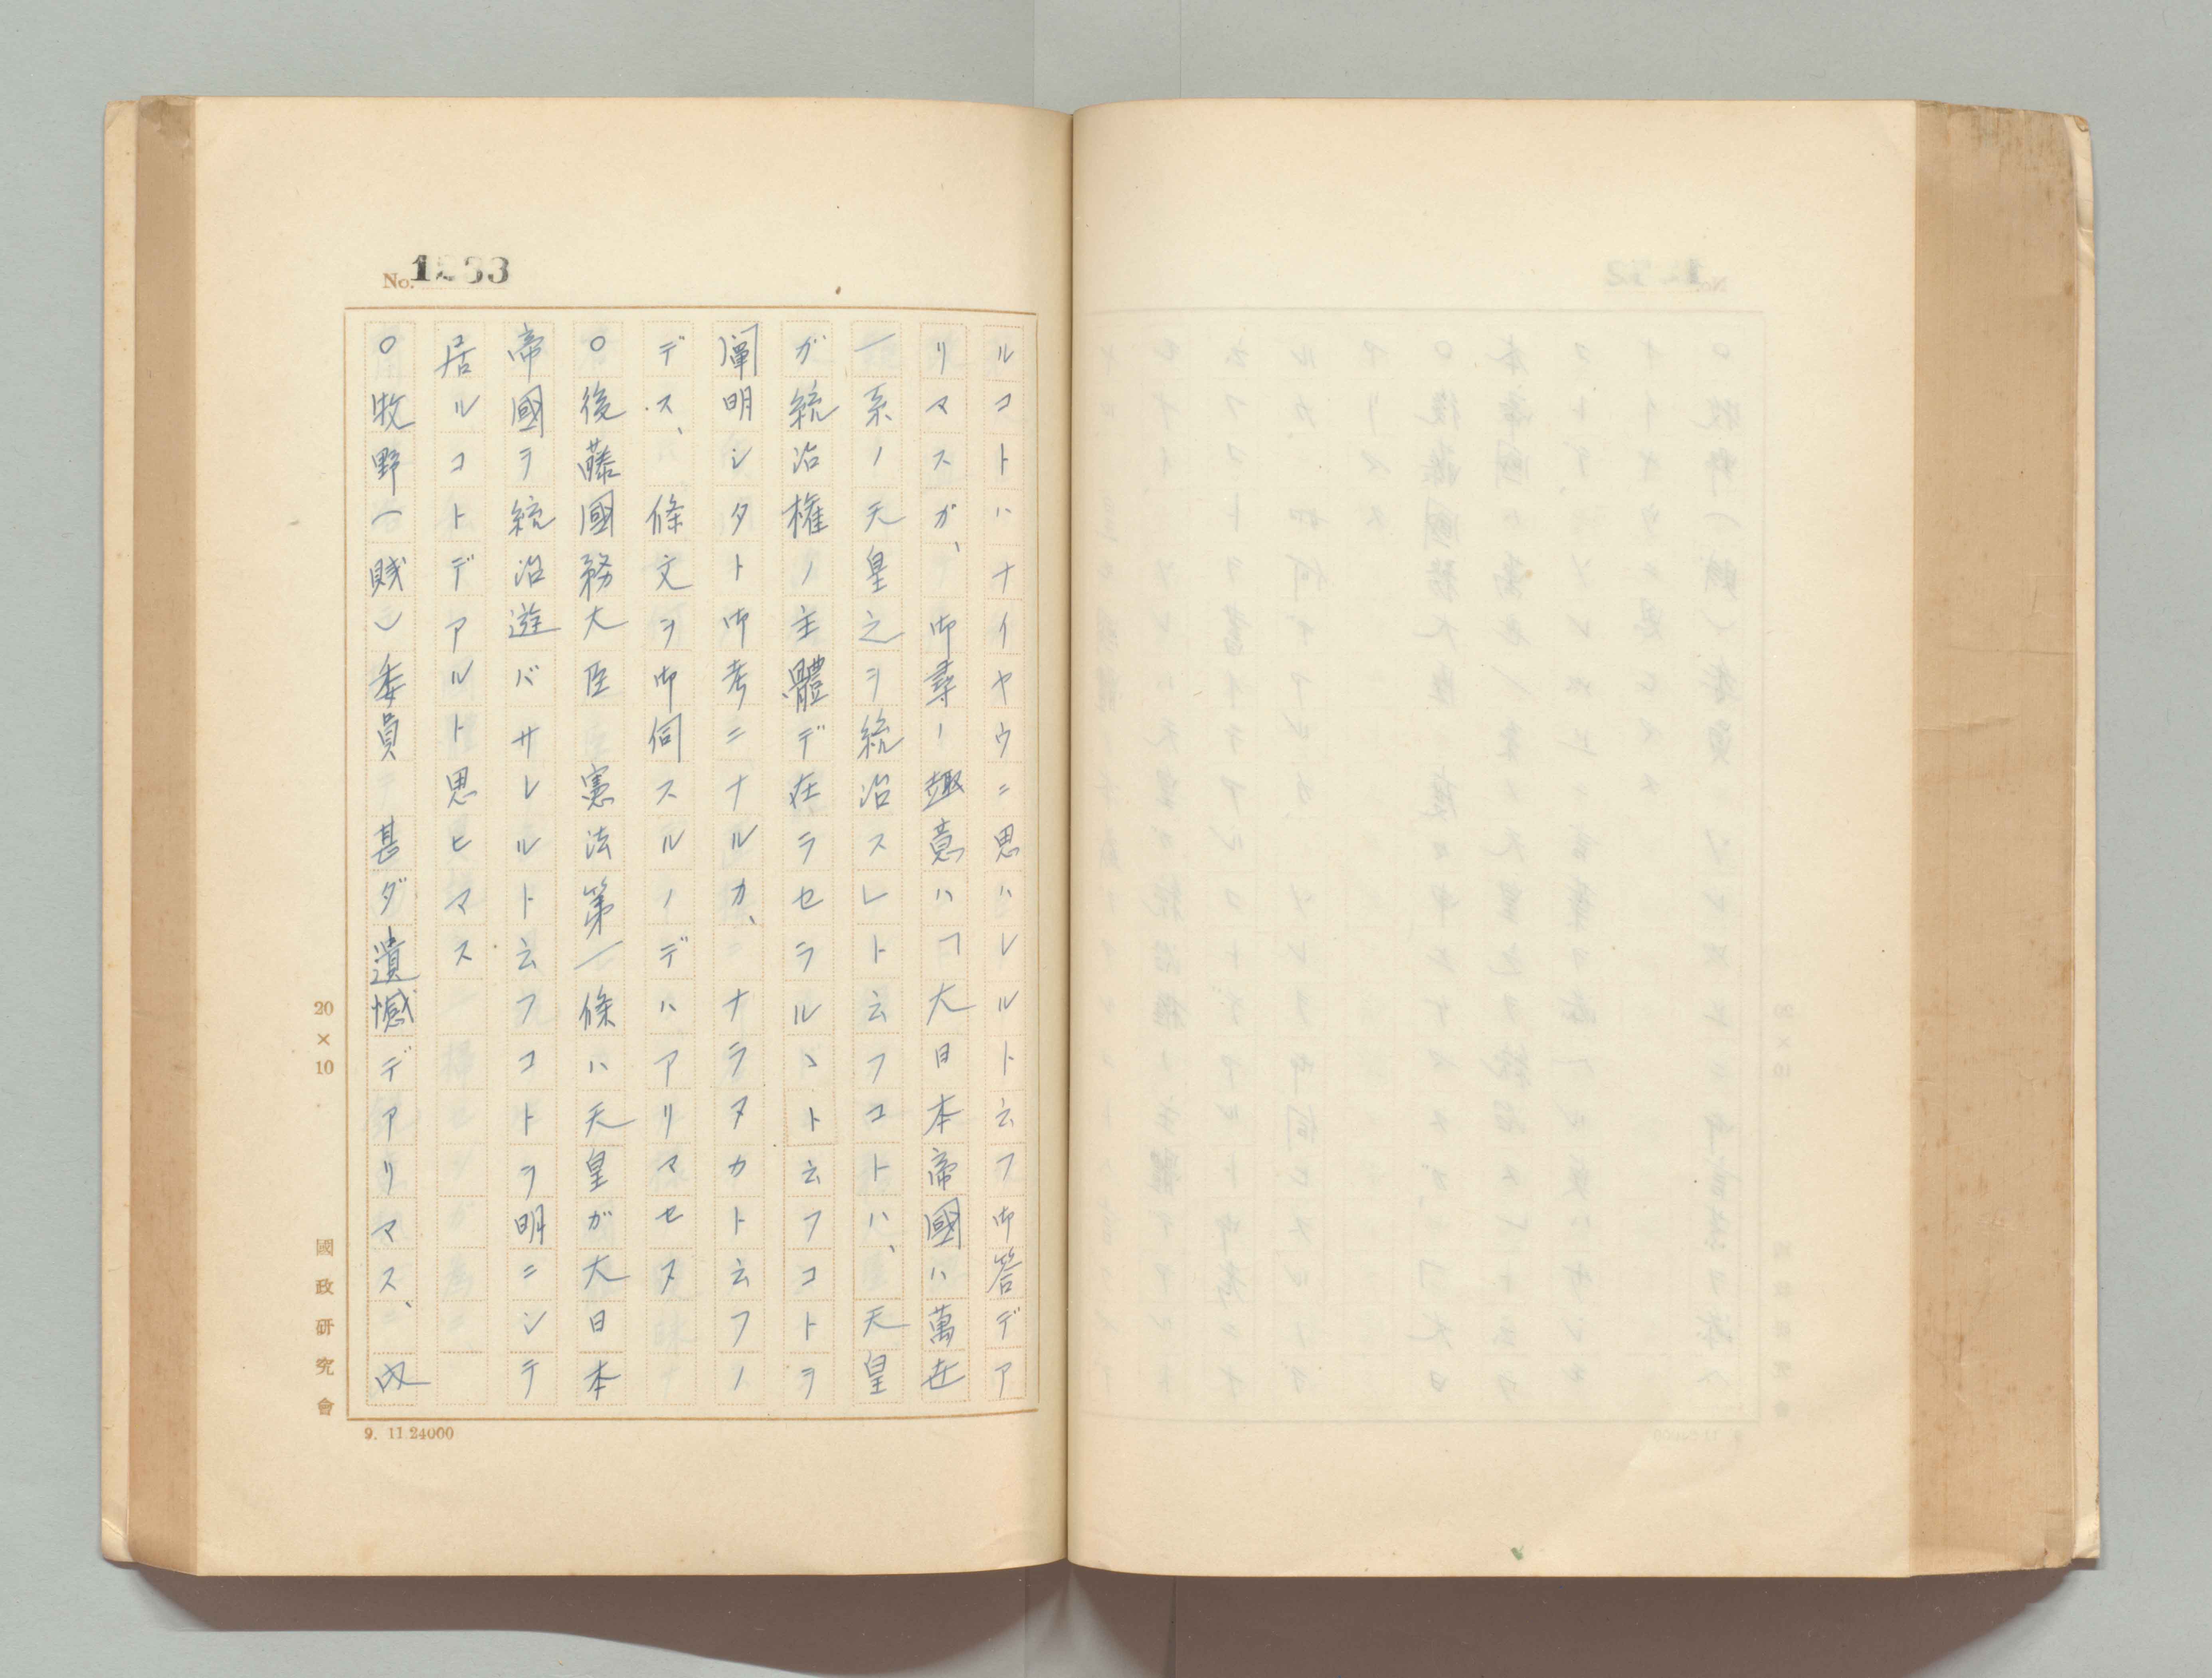 No. 1233
ルコトハナイヤウニ思ハレルト云フ御答デア
リマスガ、御尋ノ趣意ハ「大日本帝國ハ萬世
一系ノ天皇之ヲ統治スレト云フコトハ、天皇
ガ統治權ノ主體デ在ラセラルヽト云フコトヲ
闡明シタト御考ニナルカ、ナラヌカト云フノ
デス、條文ヲ御伺スルノデハアリマセヌ
○後藤國務大臣 憲法第一條ハ天皇ガ大日本
帝國ヲ統治遊バサレルト云フコトヲ明ニシテ
居ルコトデアルト思ヒマス
○牧野(賤)委員 甚ダ遺憾デアリマス、内
20×10
國政研究會
9. 11.24000